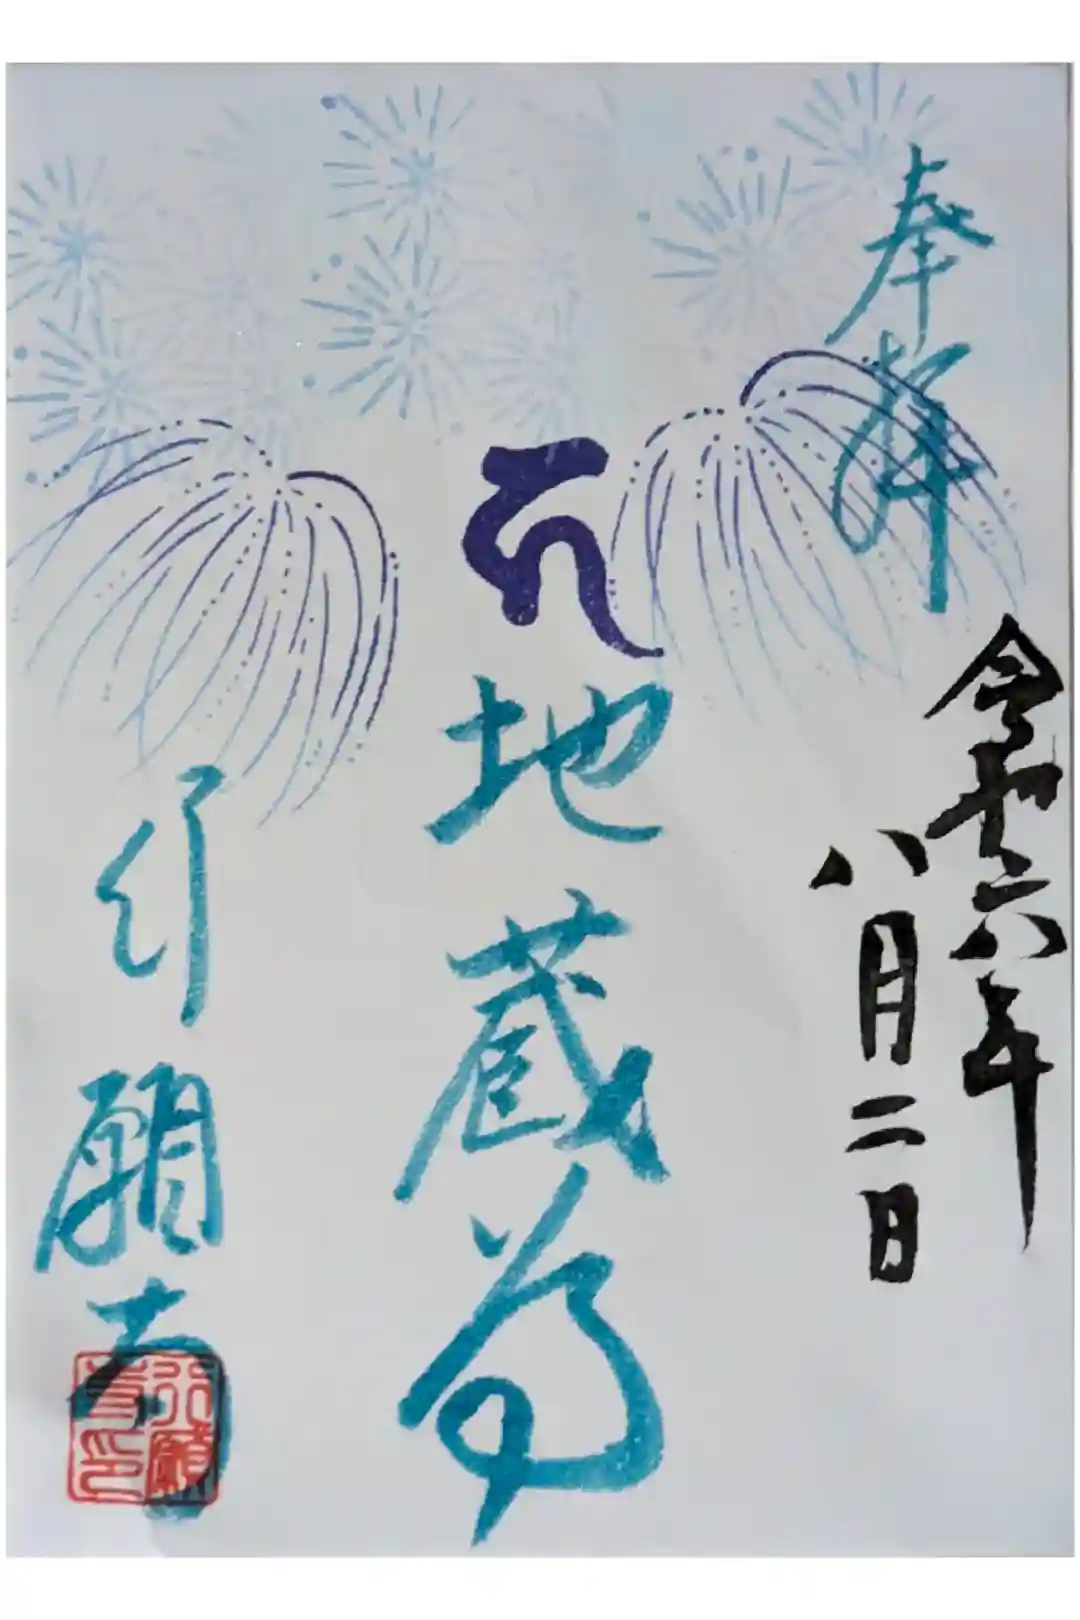 奉拝
令和六年
八月二日
𑖮
地蔵尊
行願寺
行願
寺印